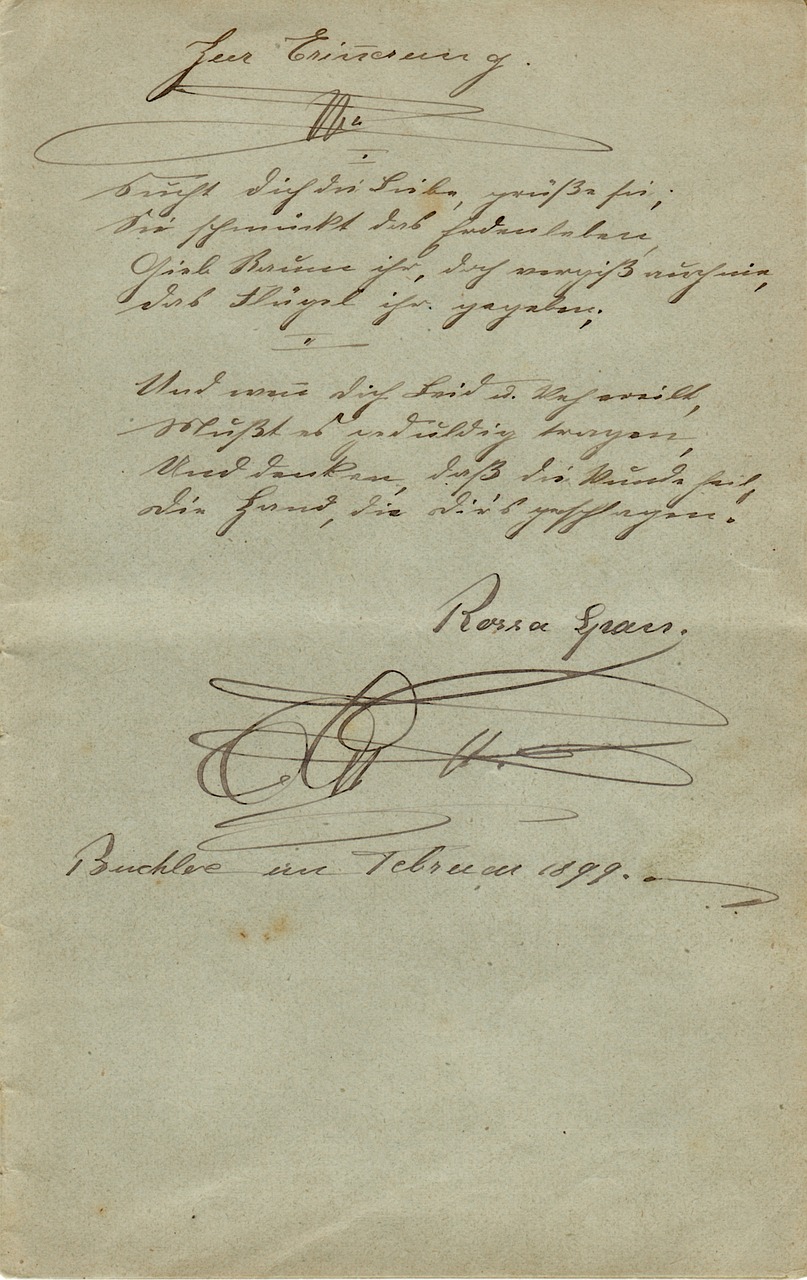 Zur Erin̅erung.
Sucht dich die Liebe, grüße sie;
Sie schmückt das Erdenleben,
Gieb Raum ihr, doch vergiß auch nie,
das Flügel ihr gegeben;
Und wen̅ dich Leid u. Weh ereilt,
Mußt es geduldig tragen,
Und denken, daß die Wunde heilt,
die Hand, die dir's geschlagen.
Rossa Graf.
Buchloe im Februar 1899.